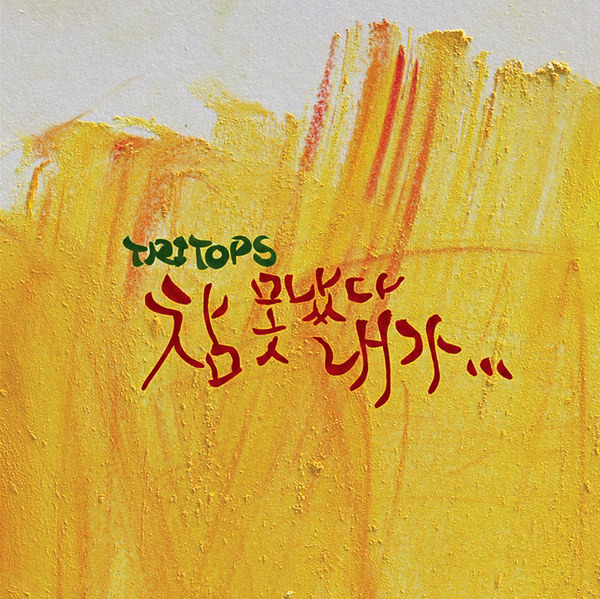 TRITOPS
참 못났다
내가...